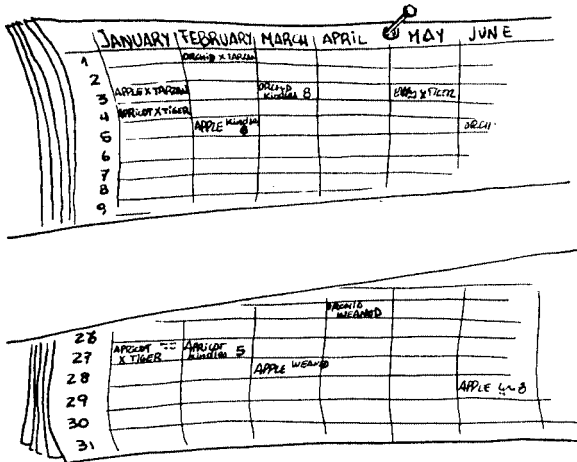 JANUARY FEBRUARY MARCH APRIL MAY JUNE
1 ORCHID X TARZAN
2
3 APPLE X TARZAN ORCHID kindles 8 X TIGER
4 APRICOT X TIGER
5 APPLE kindles 8 ORCH
6
7
8
9
26 ORCHID WEANED
27 APRICOT X TIGER APRICOT kindles 5
28 APPLE WEANED
29 APPLE 8
30
31